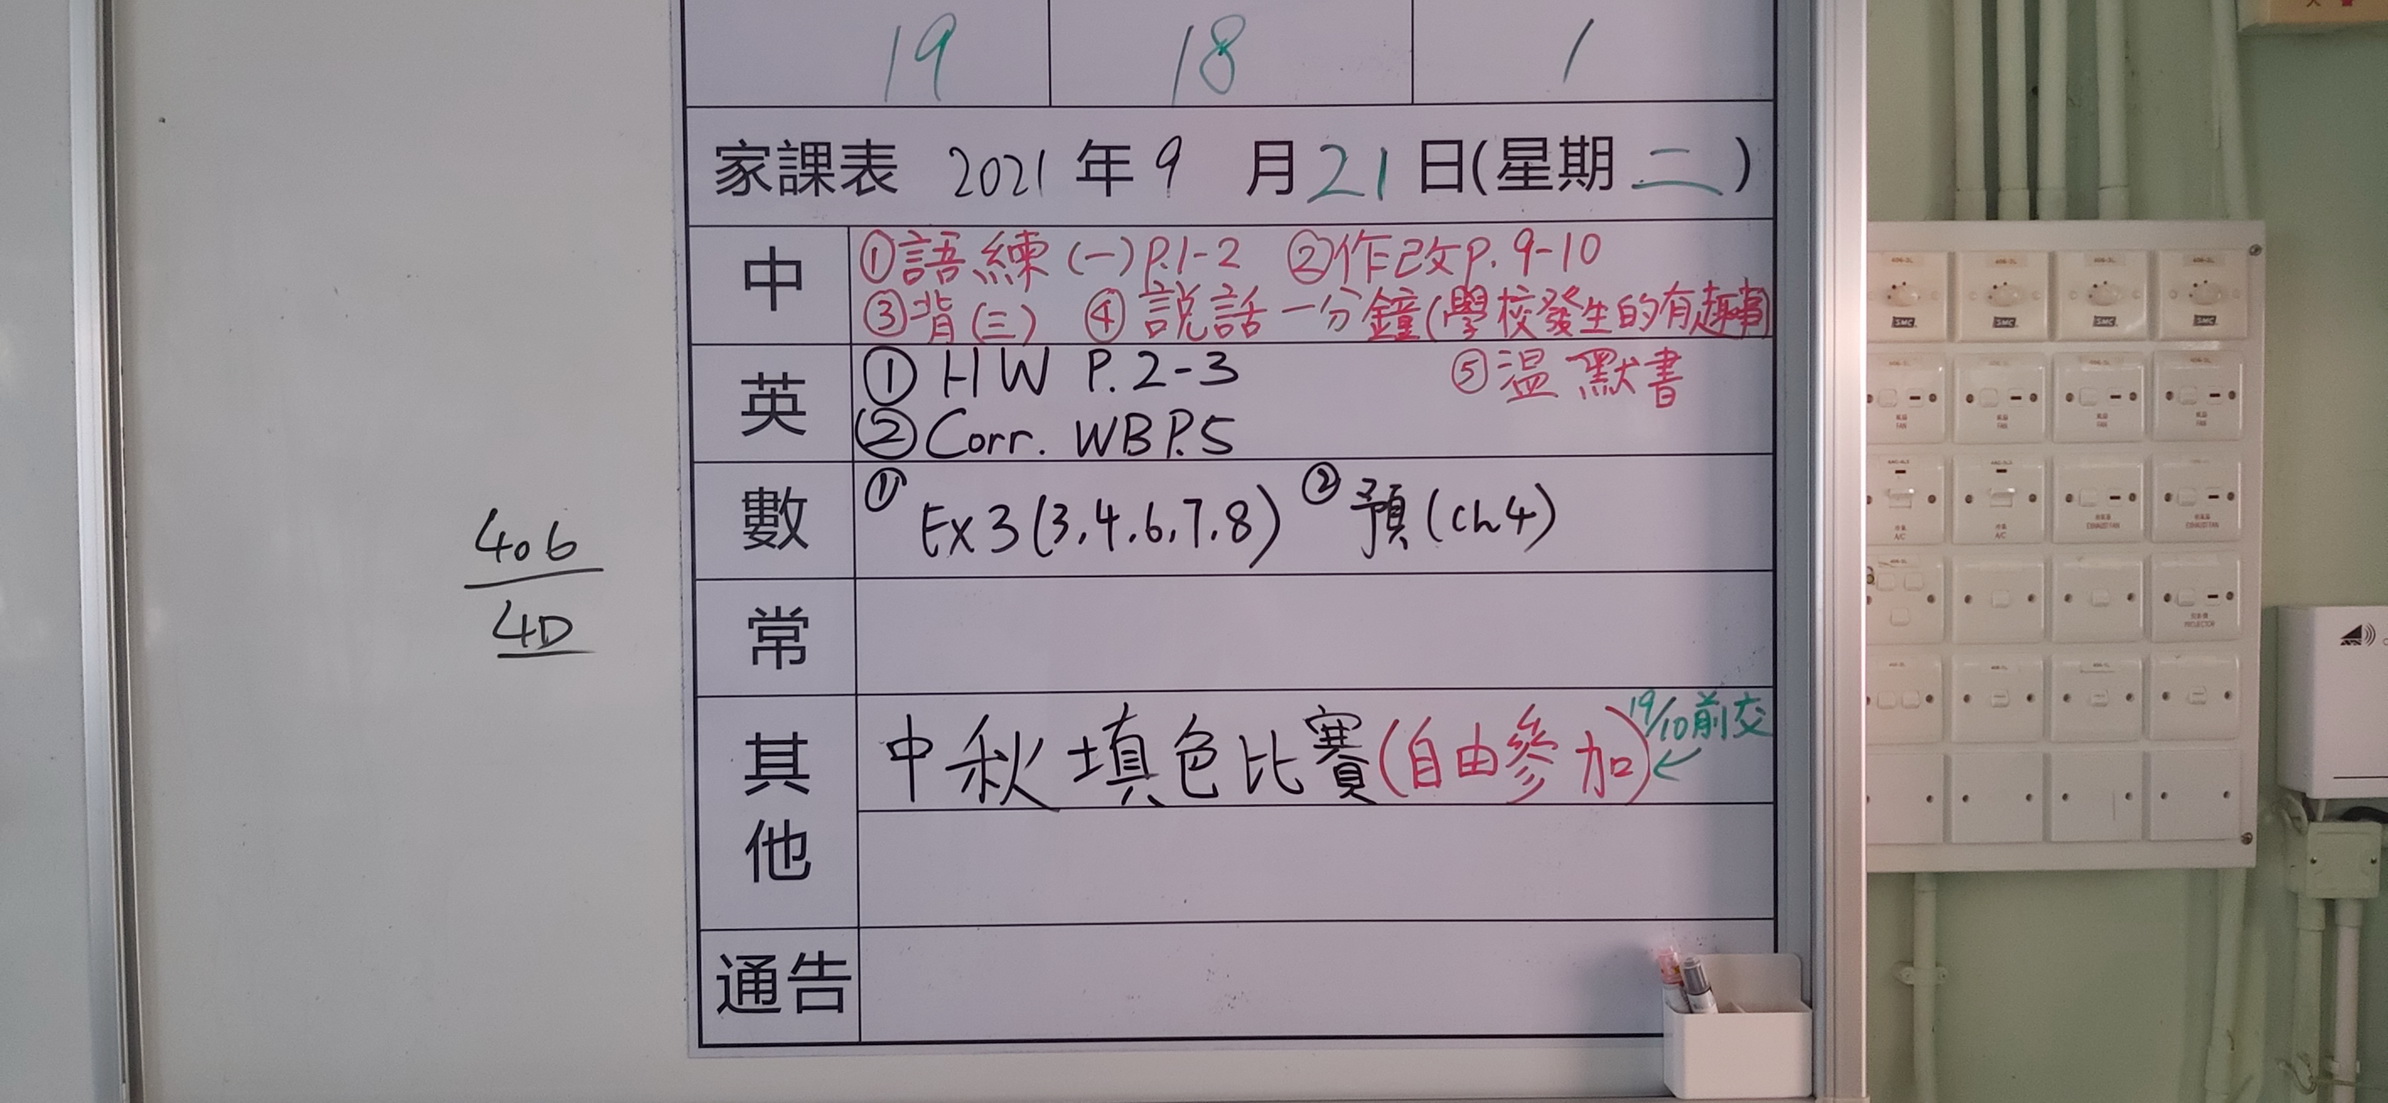 19 18 1
家課表 2021 年 9 月 21 日(星期 二 )
中 ①語練(一)P.1-2 ②作改P. 9-10
③背(三) ④説話一分鐘(學校發生的有趣事)
英 ① HW P.2-3 ⑤溫默書
② Corr. WB P.5
數 ① Ex 3 (3,4,6,7,8) ② 預(ch4)
常
其他 中秋填色比賽(自由參加) 19/10前交
通告
406
4D
SMC SMC SMC SMC
FAN FAN FAN FAN
A/C A/C EXHAUST FAN EXHAUST FAN
PROJECTOR